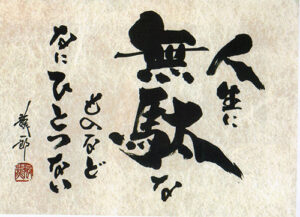 人生に
無駄な
ものなど
なにひとつない